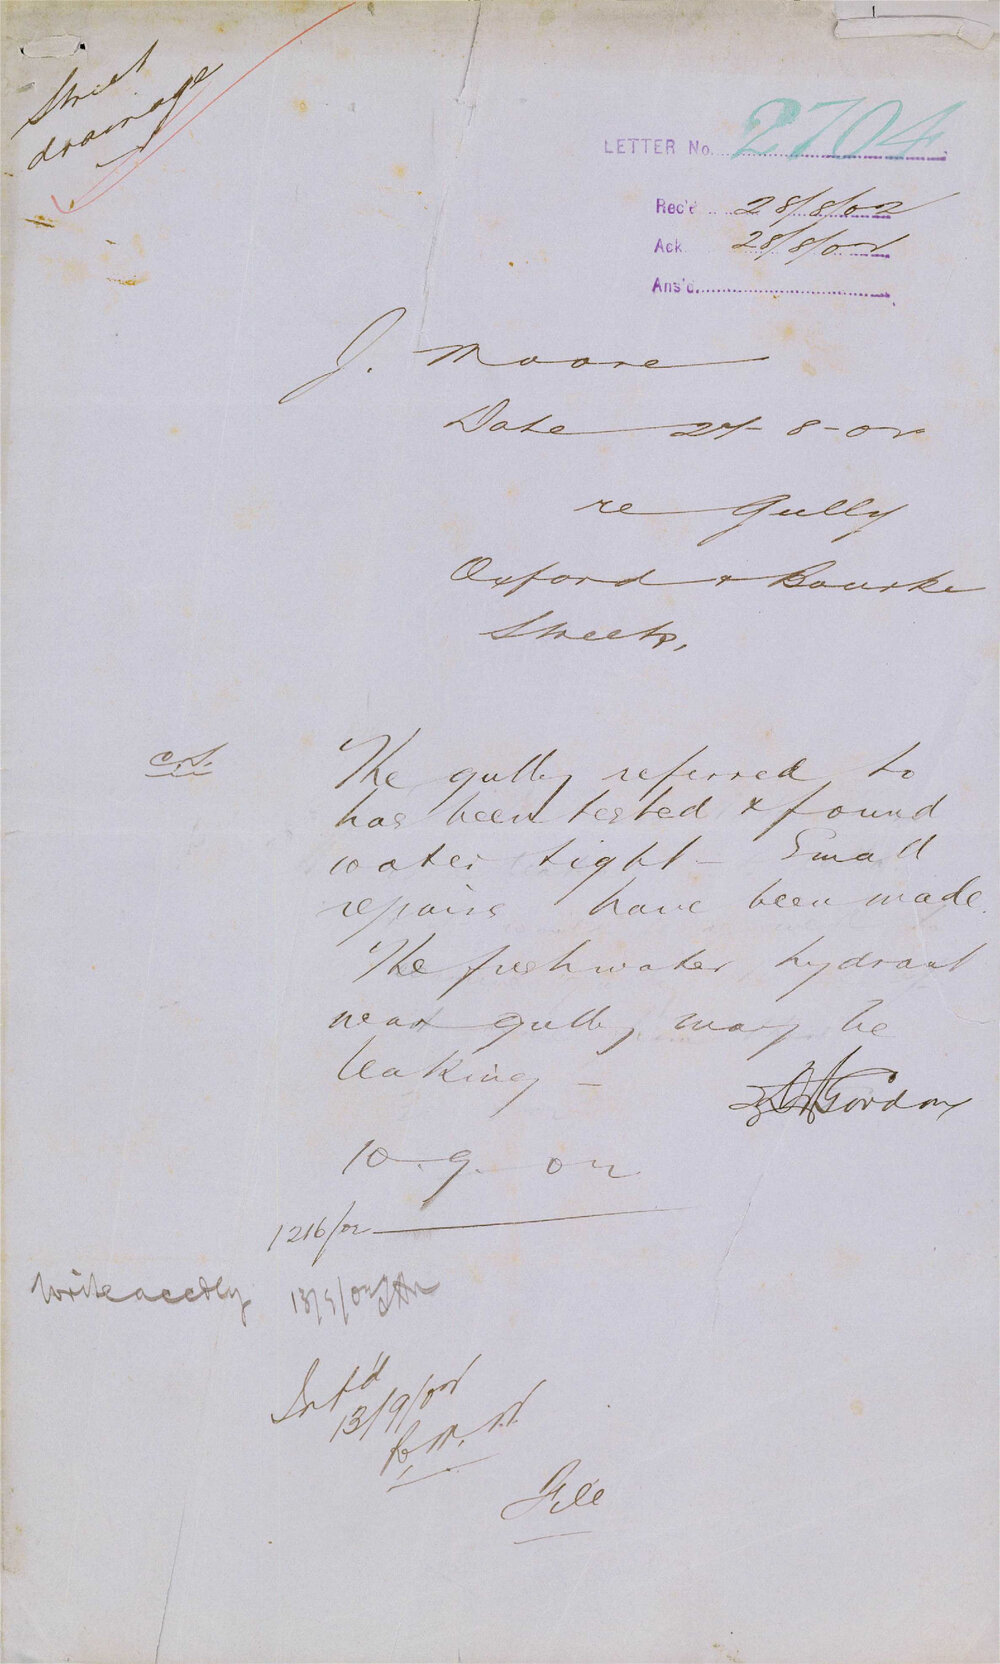 Street
drainage
LETTER No. 2704
Rec'd 28/8/02
Ack 28/8/02
Ans'd
J. Moore
Date 27-8-02
re Gully
Oxford & Bourke
Streets.
C.S.
The gully referred to
has been tested & found
water tight - Small
repairs have been made.
The freshwater hydrant
near gully may be
leaking -
Gordon
10.9.02
1216/02
Write accdly 13/9/02
Inf'd
13/9/02
File